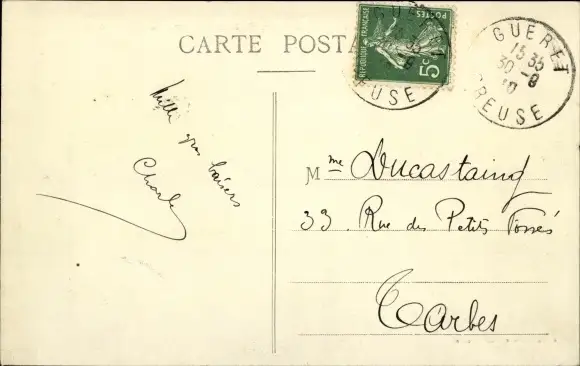 CARTE POSTA
RÉPUBLIQUE FRANÇAISE
POSTES
5c
GUERET
15 35
30 -8
10
CREUSE
Mille gros baisers
Charles
Mme Ducastaing
33 Rue des Petits Fossés
Tarbes